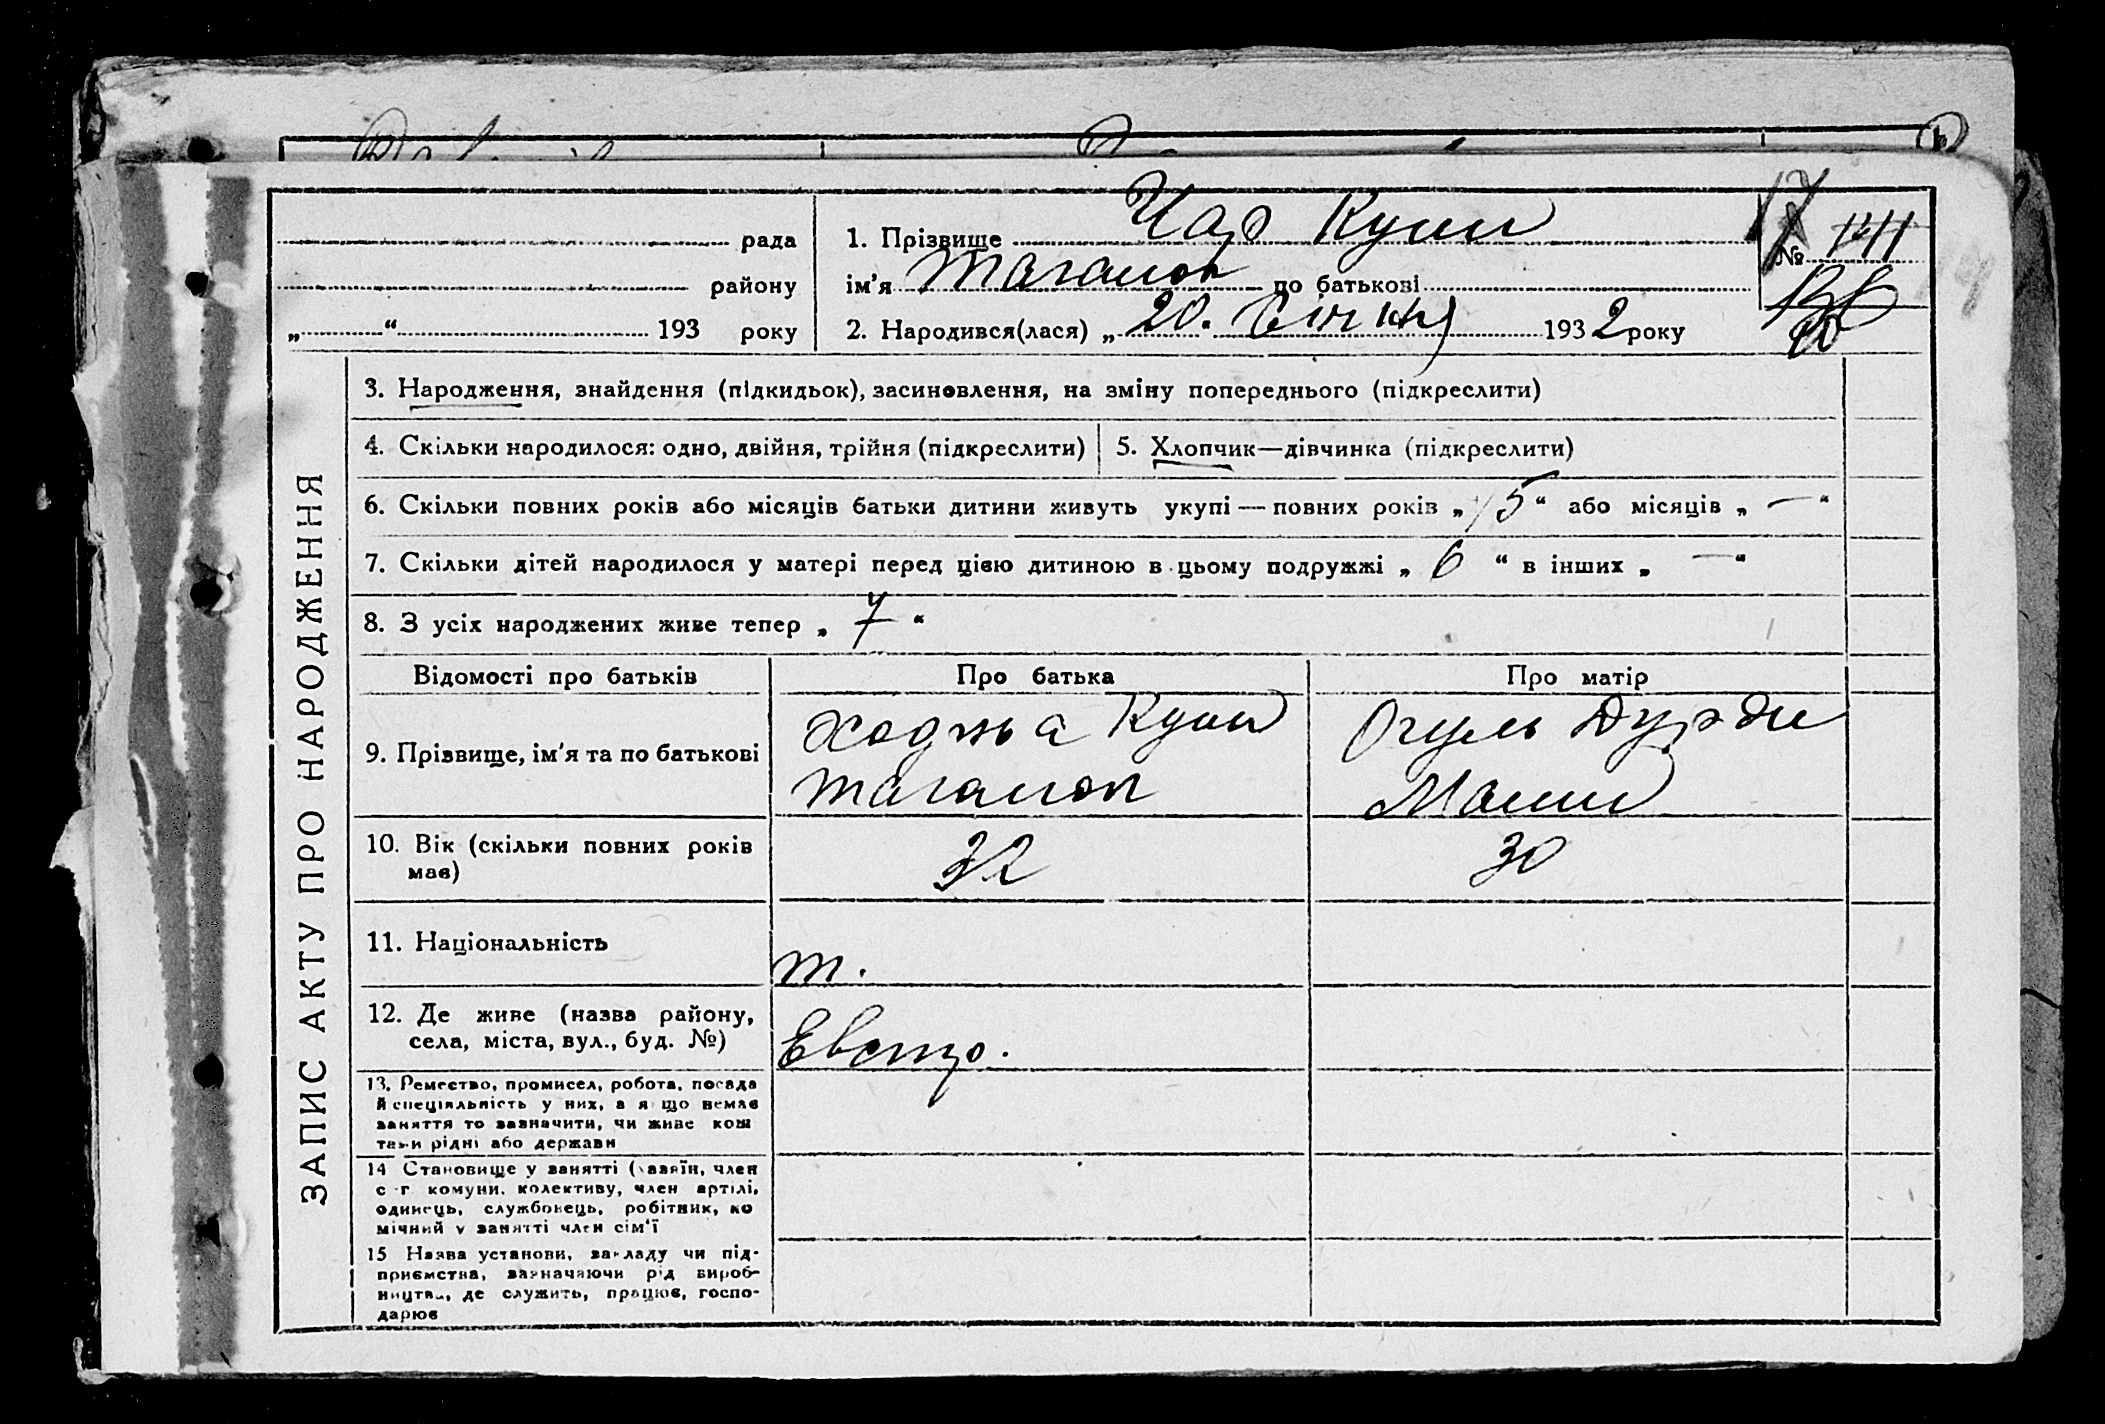 рада
району
„ “ 193 року
1. Прізвище Чар Кули
ім'я Таганоп по батькові
2. Народився(лася) „ 20. Січня 1932 року
№ 141
ЗАПИС АКТУ ПРО НАРОДЖЕННЯ
3. Народження, знайдення (підкидьок), засиновлення, на зміну попереднього (підкреслити)
4. Скільки народилося: одно, двійня, трійня (підкреслити)
5. Хлопчик—дівчинка (підкреслити)
6. Скільки повних років або місяців батьки дитини живуть укупі — повних років „ 15 “ або місяців „ — “
7. Скільки дітей народилося у матері перед цією дитиною в цьому подружжі „ 6 “ в інших „ — “
8. З усіх народжених живе тепер „ 7 “
Відомості про батьків
Про батька
Про матір
9. Прізвище, ім'я та по батькові
Ходжа Кули
Таганоп
Огуль Дурды
Мами
10. Вік (скільки повних років
має)
32
30
11. Національність
т.
12. Де живе (назва району,
села, міста, вул., буд. №)
Евстр.
13. Ремество, промисел, робота, посада
й спеціяльність у них, а якщо немає
заняття то зазначити, чи живе кош
тами рідні або держави
14 Становище у занятті (хазяїн, член
с-г комуни, колективу, член артілі,
одинець, службовець, робітник, по
мічний у занятті член сім'ї
15 Назва установи, закладу чи під-
приємства, зазначаючи рід вироб-
ництва, де служить, працює, госпо-
дарює